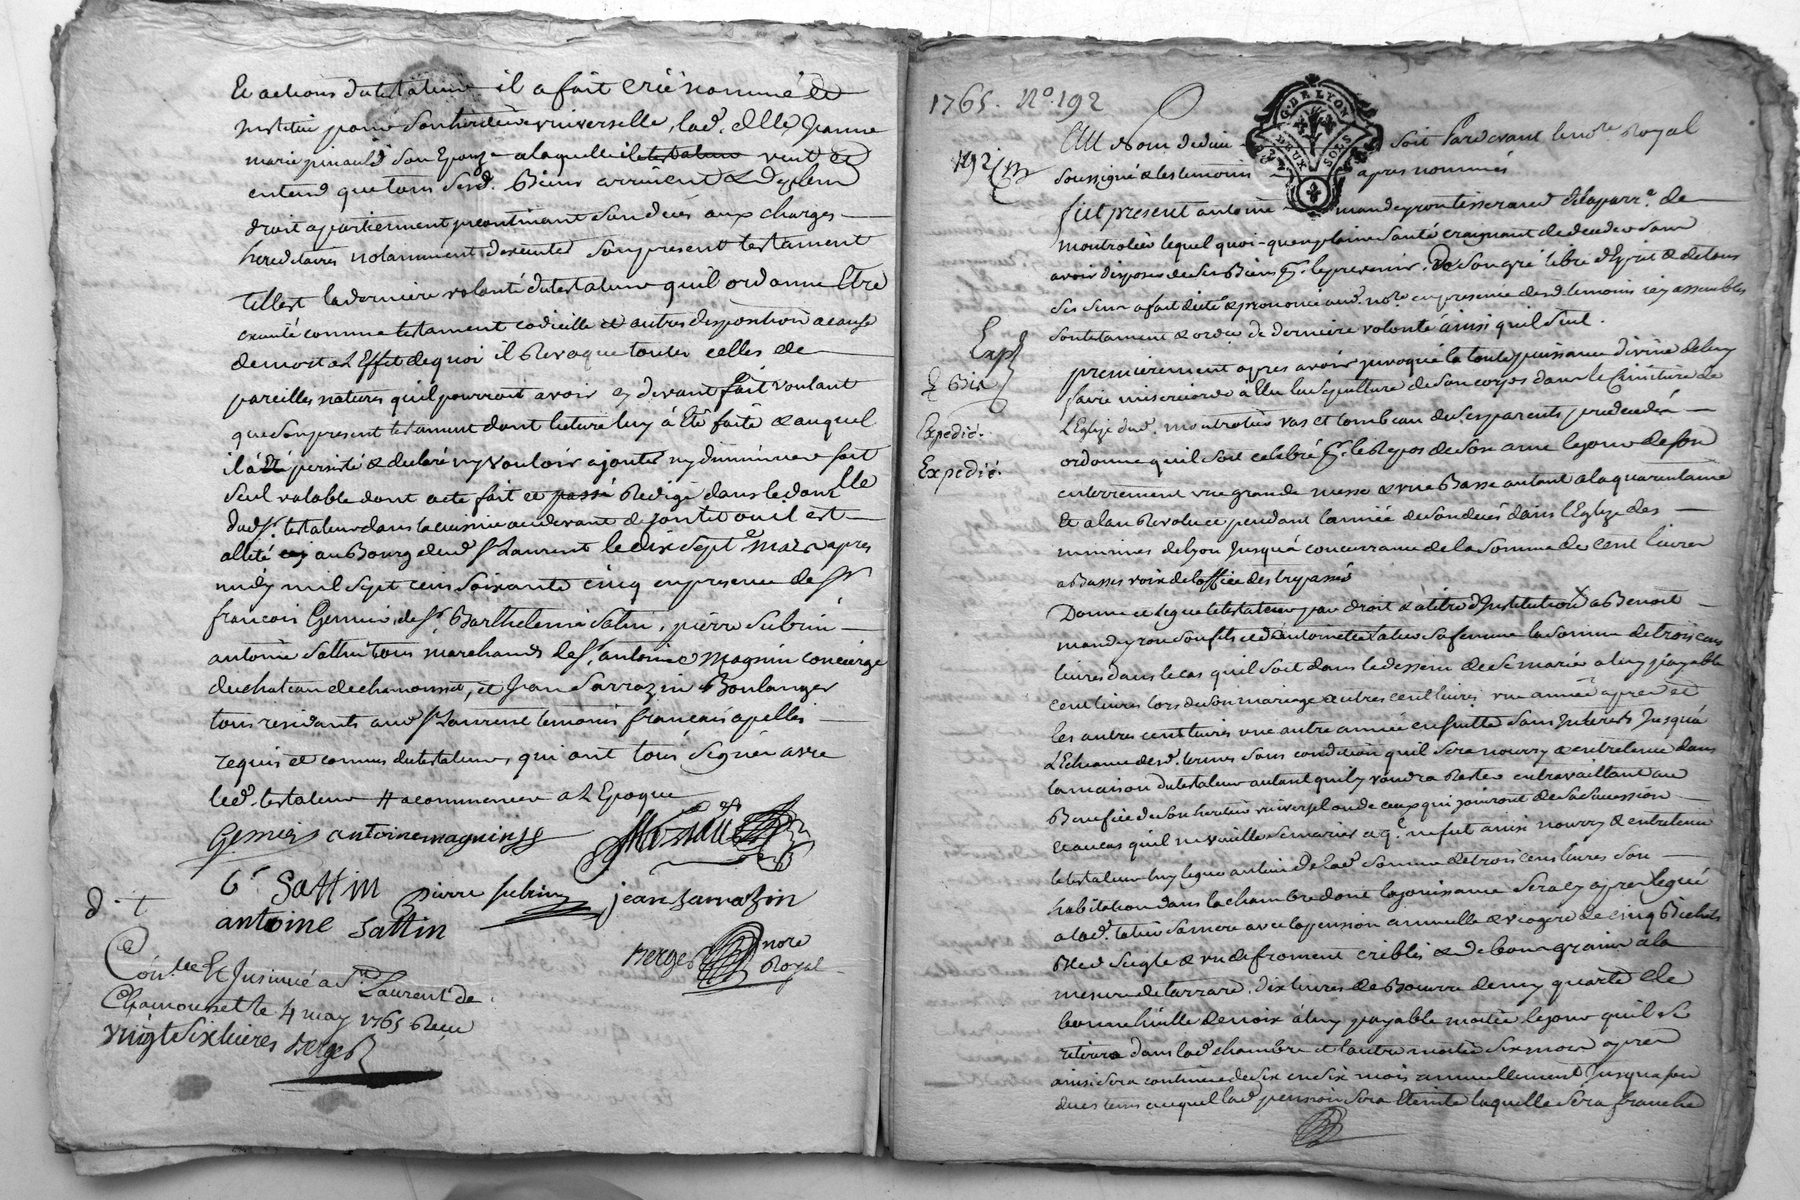 Et actions du testateur il a fait créé nommé et
institué pour son heritiere universelle, lad. delle Jeanne
marie pinault son Epouze a laquelle il testateur veut et
entend que tous sesd. Biens arrivent & de plein
droit apartiennent incontinant son deces aux charges
hereditaires notamment dexecuter son present testament
Telle est la derniere volonté du testateur quil ordonne Etre
executé comme testament codicille et autres disposition a cause
de mort a L'Effet de quoi il Revoque toutes celles de
pareilles natures quil pourroit avoir cy devant fait voulant
que son present testament dont lecture luy à Eté faite & auquel
il à persisté & declaré ny vouloir ajouter ny diminuer soit
seul valable dont acte fait et passé Redigé dans le dom lle
dud sr. testateur dans la cuisine au devant de son lit ou il est
allité au Bourg dud St Laurent le dix sept mars apres
midy mil sept cens soixante cinq en presence de Sr
francois Gernier, de Sr. Barthelemi Satin, pierre Subrin
antoine Sattin tous marchands le Sr. antoine Magnin concierge
du chateau de chamousset, et Jean Sarrazin Boulanger
tous residants aud St Laurent temoins francais apellés
requis et connus du testateur, qui ont tous signés avec
led. testateur # a commencer a L'Epoque
Gernier antoine magnin
B Sattin pierre subrin jean sarrazin
antoine Sattin
d. t
Berger nore
Royal
Con.lé Et Insinué a St. Laurent de
Chamousset le 4 may 1765 Reçu
vingt six livres Berger
1765. No. 192
192
G. DE LYON
DEUX SOLS
Au Nom de dieu soit Pardevant le nore Royal
soussigné & les temoins apres nommés
fut present antoine mandeyron tisserand de la parr.e de
montrotier lequel quoi-quen pleine santé craignant de deceder sans
avoir disposé de ses Biens pr. le prevenir. De son gré libre d'Esprit & de tous
ses sens a fait dicté & prononcé aud. nore en presence desd. temoins icy assemblés
son testament & ordce. de derniere volonté ainsi quil suit.
Exp
Et Bis
Expedié.
Expedié.
premierement apres avoir invoqué la toute puissance divine de luy
faire misericorde à Elu la sepulture de son corps dans le Cimitiere de
L'Eglize dud. montrotier vas et tombeau de ses parents predecedés
ordonne quil soit celebré pr. le Repos de son ame le jour de son
enterrement une grande messe & une Basse autant a la quarantaine
Et a lan Revolu et pendant l'année de son deces dans l'Eglize des
minimes de lyon jusqu'a concurrance de la somme de cent livres
a Basses voix de l'office des trepassés
Donne et legue le testateur par droit & a titre d'Institution a Benoit
mandeyron son fils et d'antoinette latieu sa femme la somme de trois cens
livres dans le cas quil soit dans le dessein de se marier a luy payable
cent livres lors de son mariage autres cent livres une année apres et
les autres cent livres une autre année ensuitte sans Interets jusqu'à
L'Echeance desd. termes sous condition quil sera nourry & entretenu dans
la maison du testateur autant quil y voudra Rester en travaillant au
Benefice de son heritier universel ou de ceux qui jouiront de sa succession
Et au cas quil ne vouille se marier et q. ne fut ainsi nourry & entretenu
le testateur luy legue au lieu de lad. somme de trois cens livres son
habitation dans la chambre dont la jouissance sera cy apres legué
a lad. latieu sa mere avec la pension annuelle & viagere de cinq Bichets
Bled seigle & un de froment criblés & de bon grain a la
mesure de tarrare. dix livres de Beurre demy quarte de
bonne huille de noix à luy payable moitié le jour quil se
retirera dans lad. chambre et l'autre moitié six mois apres
ainsi sera continué de six en six mois annuellement jusqua son
deces tems auquel lad. pension sera Eteinte laquelle sera franche